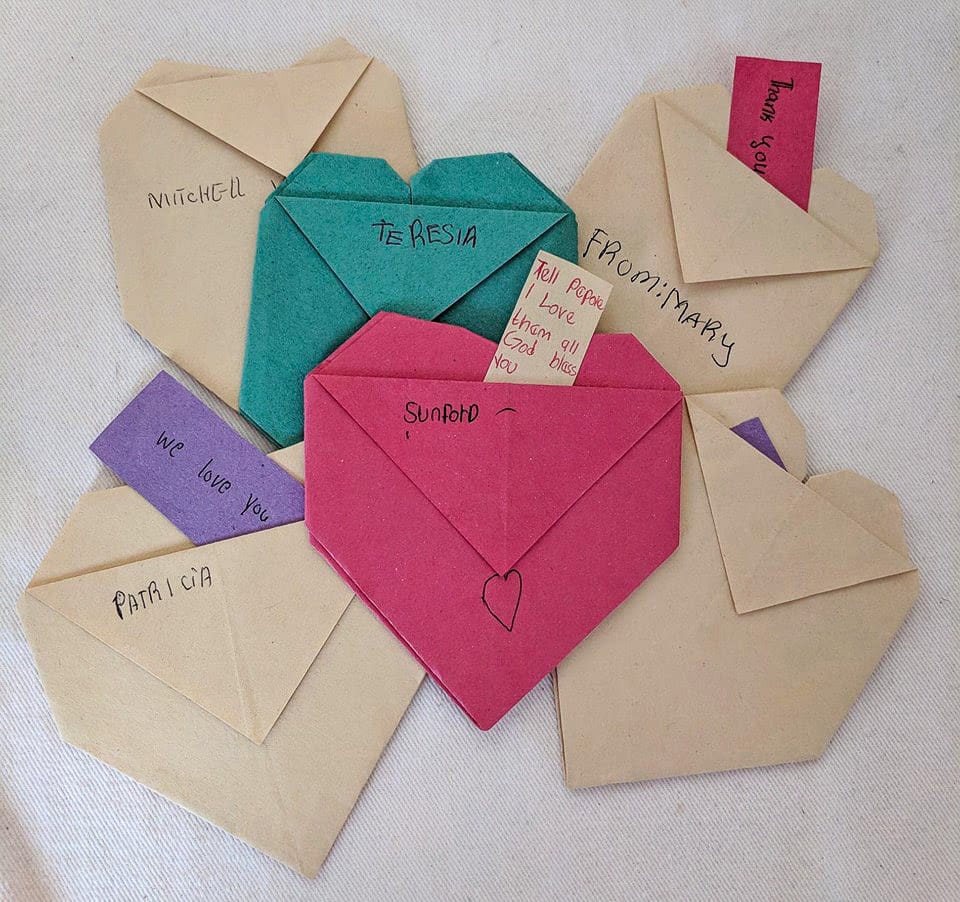 MITCHELL
TERESIA
Thank you
FROM:MARY
Tell pepole
I Love
them all
God blass
you
SunForD
we love you
PATRICIA